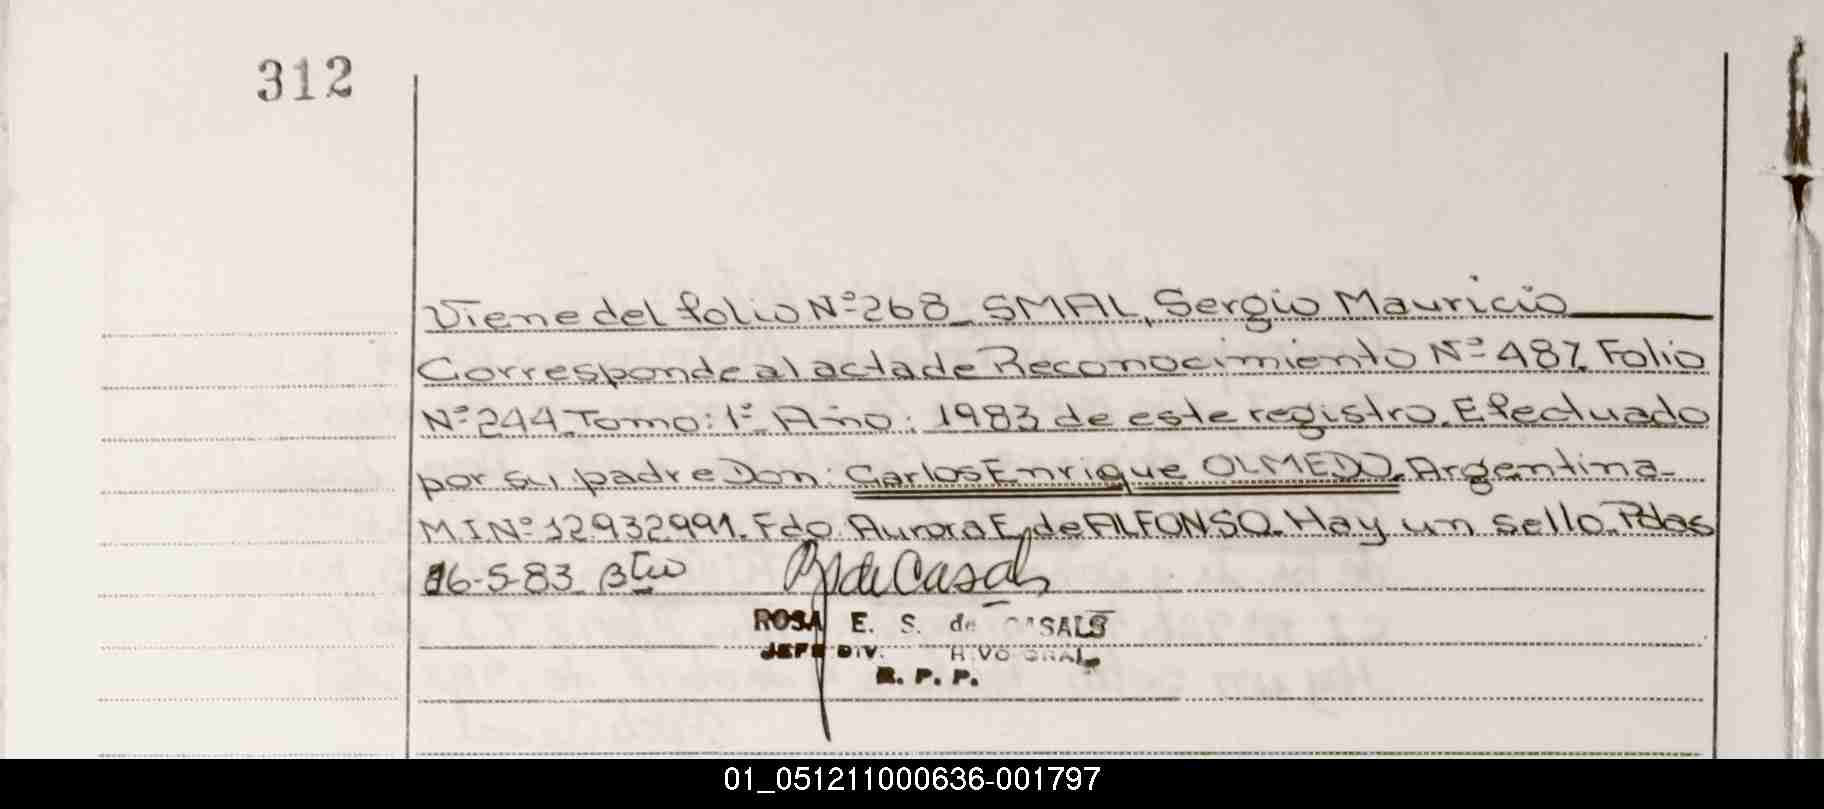 312
Viene del folio Nº 268_ SMAL, Sergio Mauricio
Corresponde al acta de Reconocimiento Nº 487. Folio
Nº 244. Tomo: 1º_ Año: 1983 de este registro. Efectuado
por su padre Don: Carlos Enrique OLMEDO. Argentina_
M.I Nº 12.932.991. Fdo. Aurora E. de ALFONSO. Hay un sello. Pdas
16-5-83_
de Casals
ROSA E. S. de CASALS
JEFE DIV. GRAL.
R. P. P.
01_051211000636-001797